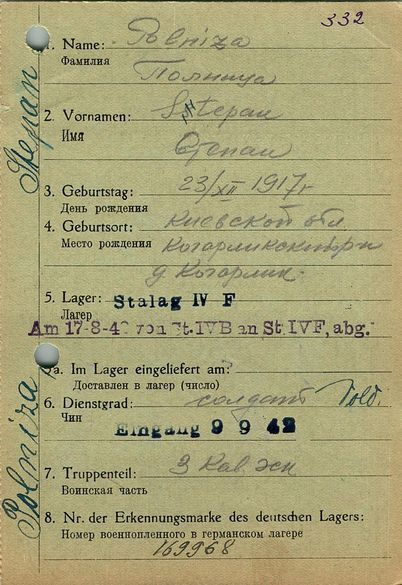 332
1. Name: Polniza
Фамилия
Полница
2. Vornamen: Stepan
Имя
Степан
3. Geburtstag: 23/XII 1917г
День рождения
4. Geburtsort: Киевской обл
Место рождения Когарликский р-н
д Когарлик.
5. Lager: Stalag IV F
Лагер
Am 17-8-42 von St. IVB an St. IVF, abg.
5a. Im Lager eingeliefert am:
Доставлен в лагер (число)
6. Dienstgrad: солдат Sold.
Чин
Eingang 9 9 42
7. Truppenteil: 3 Кав
Воинская часть
8. Nr. der Erkennungsmarke des deutschen Lagers:
Номер военнопленного в германском лагере
169968
Stepan
Polniza